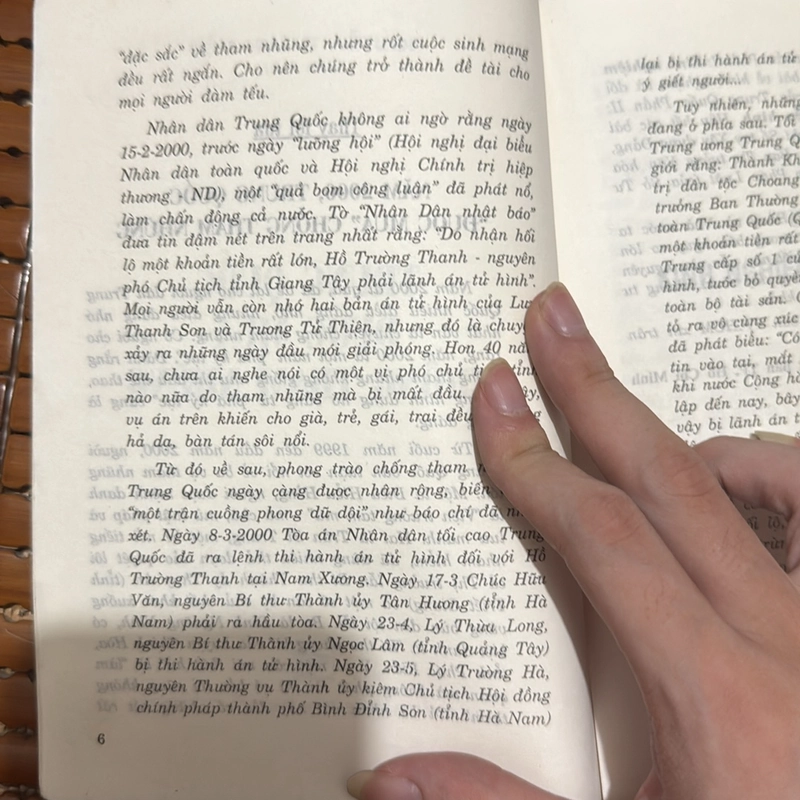 "đặc sắc" về tham nhũng, nhưng rốt cuộc sinh mạng
đều rất ngắn. Cho nên chúng trở thành đề tài cho
mọi người đàm tếu.
Nhân dân Trung Quốc không ai ngờ rằng ngày
15-2-2000, trước ngày "lưỡng hội" (Hội nghị đại biểu
Nhân dân toàn quốc và Hội nghị Chính trị hiệp
thương - ND), một "quả bom công luận" đã phát nổ,
làm chấn động cả nước. Tờ "Nhân Dân nhật báo"
đưa tin đậm nét trên trang nhất rằng: "Do nhận hối
lộ một khoản tiền rất lớn, Hồ Trường Thanh - nguyên
phó Chủ tịch tỉnh Giang Tây phải lãnh án tử hình".
Mọi người vẫn còn nhớ hai bản án tử hình của Lưu
Thanh Sơn và Trương Tử Thiện, nhưng đó là
xảy ra những ngày đầu mới giải phóng. Hơn 40
sau, chưa ai nghe nói có một vị phó chủ
nào nữa do tham nhũng mà bị mất đầu.
vụ án trên khiến cho già, trẻ, gái, trai đều
hả dạ, bàn tán sôi nổi.
Từ đó về sau, phong trào chống tham
Trung Quốc ngày càng được nhân rộng, biến
"một trận cuồng phong dữ dội" như báo chí đã
xét. Ngày 8-3-2000 Tòa án Nhân dân tối cao Trung
Quốc đã ra lệnh thi hành án tử hình đối với Hồ
Trường Thanh tại Nam Xương. Ngày 17-3 Chúc Hữu
Văn, nguyên Bí thư Thành ủy Tân Hương (tỉnh Hà
Nam) phải ra hầu tòa. Ngày 23-4, Lý Thừa Long,
nguyên Bí thư Thành ủy Ngọc Lâm (tỉnh Quảng Tây)
bị thi hành án tử hình. Ngày 23-5, Lý Trường Hà,
nguyên Thường vụ Thành ủy kiêm Chủ tịch Hội đồng
chính pháp thành phố Bình Đỉnh Sơn (tỉnh Hà Nam)
6
lại bị thi hành án tử
ý giết người...
Tuy nhiên, những
đang ở phía sau. Tối
Trung ương Trung Q
giới rằng: Thành Kh
trị dân tộc Choang
trưởng Ban Thường
toàn Trung Quốc (Q
một khoản tiền rất
Trung cấp số 1 củ
hình, tước bỏ quyề
toàn bộ tài sản.
tỏ ra vô cùng xúc
đã phát biểu: "Có
tin vào tai, mắt
khi nước Cộng hò
lập đến nay, bây
vậy bị lãnh án t